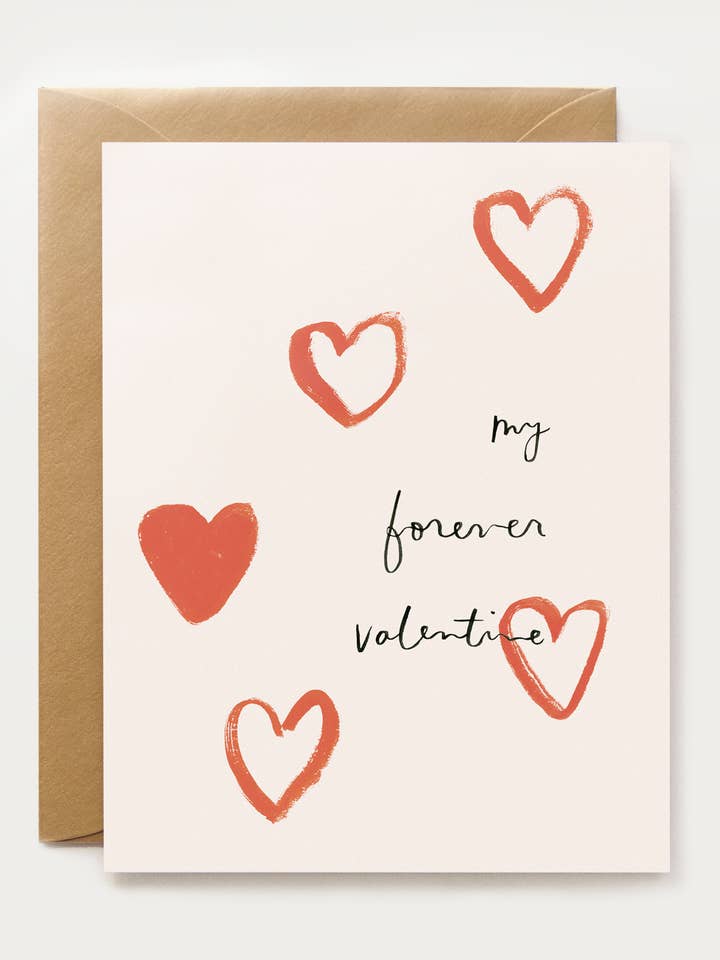 my
forever
valentine